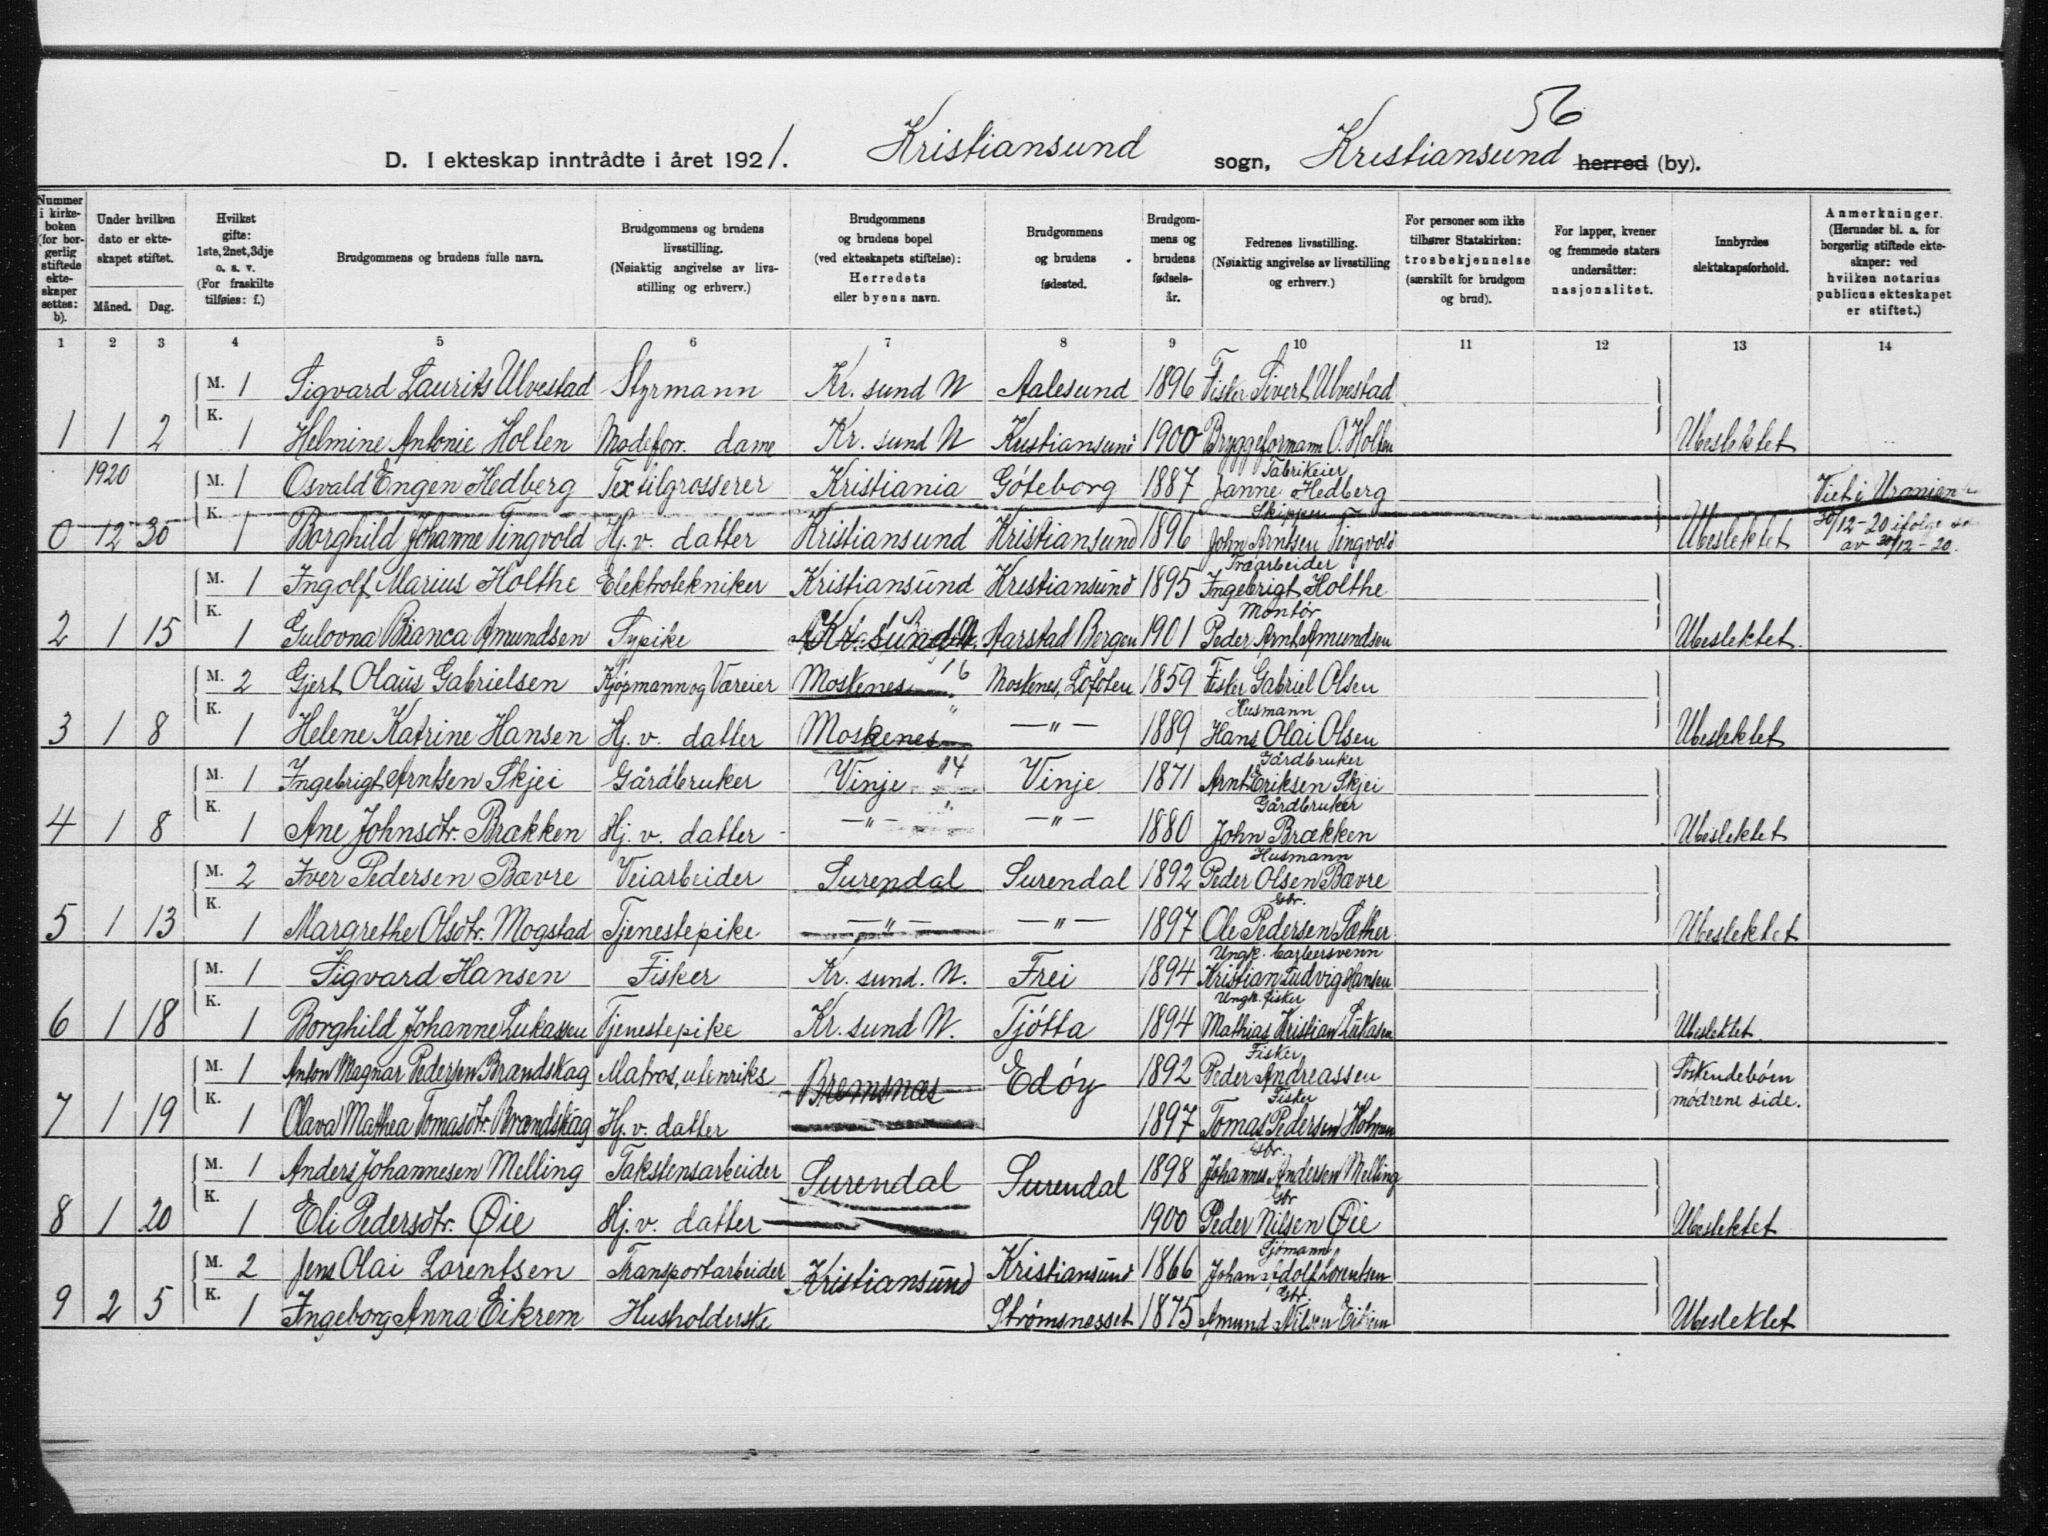 56
D. I ekteskap inntrådte i året 1921. Kristiansund sogn, Kristiansund herred (by).
Nummer i kirke-boken (for bor-gerlig stiftede ekte-skaper settes: b).
Under hvilken dato er ekte-skapet stiftet.
Måned. Dag.
Hvilket gifte: 1ste, 2net, 3dje o. s. v. (For fraskilte tilføies: f.)
Brudgommens og brudens fulle navn.
Brudgommens og brudens livsstilling. (Nøiaktig angivelse av livs-stilling og erhverv.)
Brudgommens og brudens bopel (ved ekteskapets stiftelse): Herredets eller byens navn.
Brudgommens og brudens fødested.
Brudgom-mens og brudens fødsels-år.
Fedrenes livsstilling. (Nøiaktig angivelse av livsstilling og erhverv.)
For personer som ikke tilhører Statskirken: trosbekjennelse (særskilt for brudgom og brud).
For lapper, kvener og fremmede staters undersåtter: nasjonalitet.
Innbyrdes slektskapsforhold.
Anmerkninger. (Herunder bl. a. for borgerlig stiftede ekte-skaper: ved hvilken notarius publicus ekteskapet er stiftet.)
1 2 3 4 5 6 7 8 9 10 11 12 13 14
M. 1 Sigvard Laurits Ulvestad Styrmann Kr. sund N Aalesund 1896 Fisker Sivert Ulvestad
1 1 2 K. 1 Helmine Antonie Hollen Modeforr. dame Kr. sund N Kristiansund 1900 Bryggeformann O. Hollen Ubeslektet
1920 M. 1 Osvald Engen Hedberg Textilgrosserer Kristiania Göteborg 1887 Fabrikeier Janne Hedberg Viet i
0 12 30 K. 1 Borghild Johanne Tingvold Hj. v. datter Kristiansund Kristiansund 1896 Skipper John Arntsen Tingvold Ubeslektet 30/12-20 ifølge
av 30/12-20.
M. 1 Ingolf Marius Holthe Elektrotekniker Kristiansund Kristiansund 1895 Træarbeider Ingebrigt Holthe
2 1 15 K. 1 Gulovna Bianca Amundsen Sypike Kr. sund N. Aarstad Bergen 1901 Montör Peder Arnt Amundsen Ubeslektet.
M. 2 Gjert Olaus Gabrielsen Kjøpmann og Væreier Moskenes 16 Moskenes, Lofoten 1859 Fisker Gabriel Olsen
3 1 8 K. 1 Helene Katrine Hansen Hj. v. datter Moskenes " — " — 1889 Husmann Hans Olai Olsen Ubeslektet
M. 1 Ingebrigt Arntsen Skjei Gårdbruker Vinje 14 Vinje 1871 Gårdbruker Arnt Eriksen Skjei
4 1 8 K. 1 Ane Johnsdtr. Brækken Hj. v. datter — " — " — " — 1880 Gårdbruker John Brækken Ubeslektet
M. 2 Iver Pedersen Bævre Veiarbeider Surendal Surendal 1892 Husmann Peder Olsen Bævre
5 1 13 K. 1 Margrethe Olsdtr. Mogstad Tjenestepike — " — — " — 1897 Gbr. Ole Pedersen Sæther Ubeslektet
M. 1 Sigvard Hansen Fisker Kr. sund. N. Frei 1894 Ungk. Kristian Ludvig Hansen
6 1 18 K. 1 Borghild Johanne Lukassen Tjenestepike Kr. sund N. Tjötta 1894 Ungk. fisker Mathias Kristian Lukasen Ubeslektet.
M. 1 Anton Magnar Pedersen Brandskag Matros, utenriks Bremsnæs Edöy 1892 Fisker Peder Andreassen Söskendebörn
7 1 19 K. 1 Olava Mathea Tomasdtr. Brandskag Hj. v. datter 1897 Fisker Tomas Pedersen Holmen mödrene side.
M. 1 Anders Johannesen Melling Takstensarbeider Surendal Surendal 1898 Gbr. Johannes Andersen Melling
8 1 20 K. 1 Eli Pedersdtr. Øie Hj. v. datter 1900 Gbr Peder Nilsen Øie Ubeslektet
M. 2 Jens Olai Lorentsen Transportarbeider Kristiansund Kristiansund 1866 Sjömann Johan Adolf Lorentsen
9 2 5 K. 1 Ingeborg Anna Eikrem Husholderske Strømsnesset 1875 Gbr. Amund Nilsen Eikrem Ubeslektet